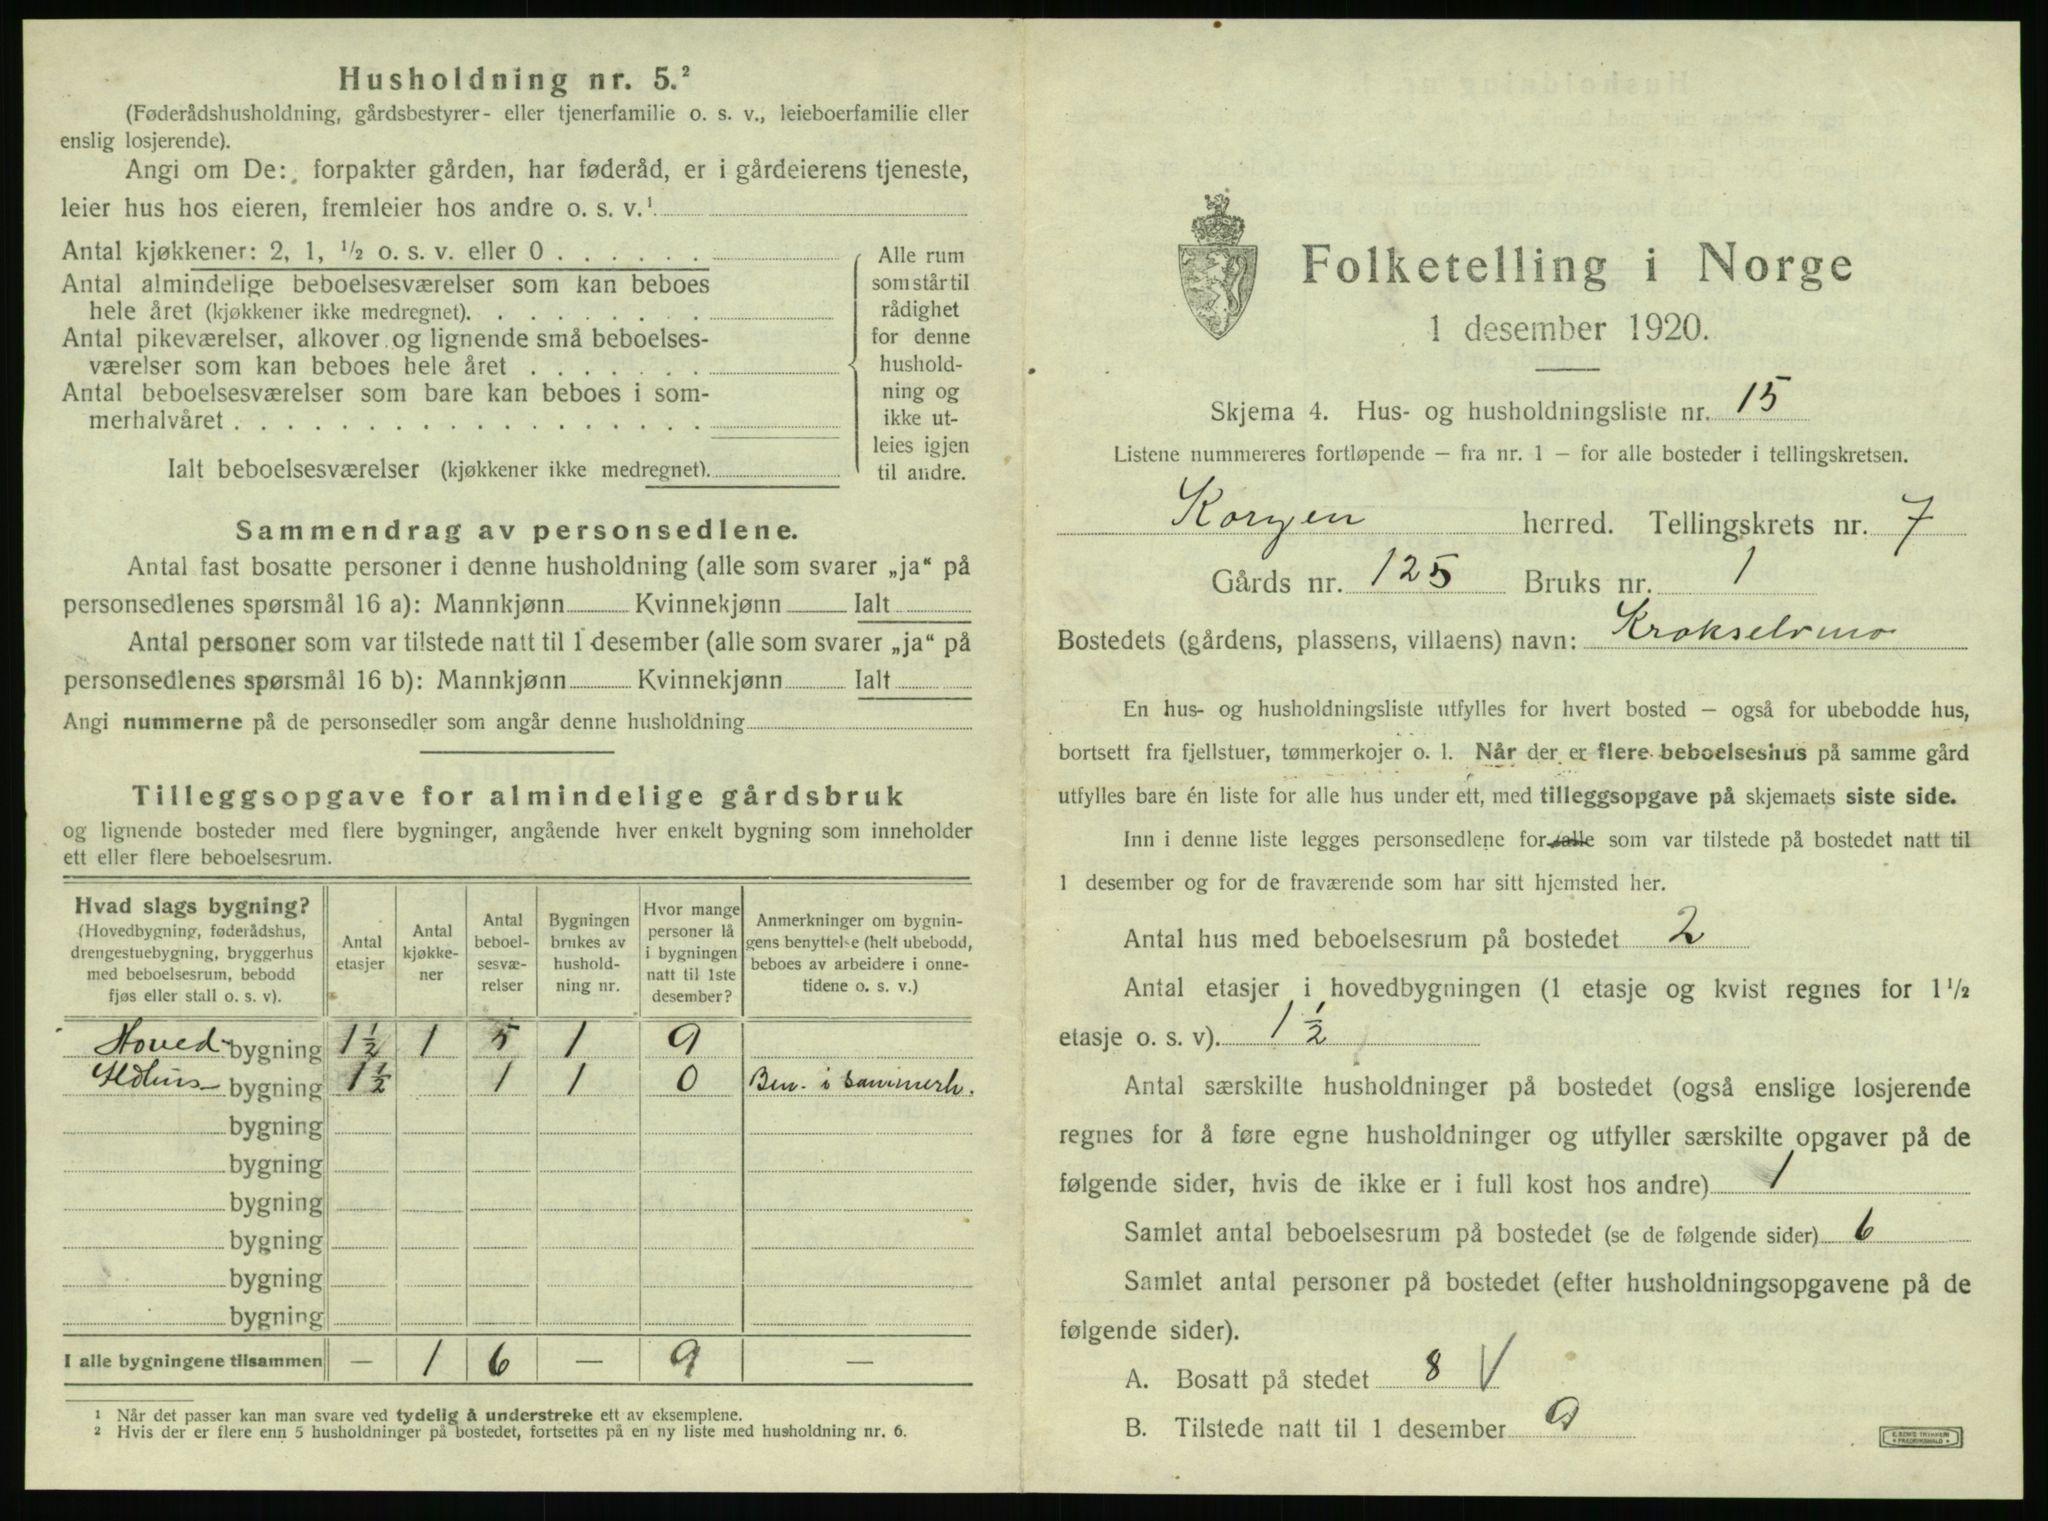 Husholdning nr. 5.²
(Føderådshusholdning, gårdsbestyrer- eller tjenerfamilie o. s. v., leieboerfamilie eller
enslig losjerende).
Angi om De: forpakter gården, har føderåd, er i gårdeierens tjeneste,
leier hus hos eieren, fremleier hos andre o. s. v.¹
Antal kjøkkener: 2, 1, ½ o. s. v. eller 0
Antal almindelige beboelsesværelser som kan beboes
hele året (kjøkkener ikke medregnet).
Antal pikeværelser, alkover og lignende små beboelses-
værelser som kan beboes hele året
Antal beboelsesværelser som bare kan beboes i som-
merhalvåret
Ialt beboelsesværelser (kjøkkener ikke medregnet).
Alle rum
som står til
rådighet
for denne
hushold-
ning og
ikke ut-
leies igjen
til andre.
Sammendrag av personsedlene.
Antal fast bosatte personer i denne husholdning (alle som svarer „ja“ på
personsedlenes spørsmål 16 a): Mannkjønn Kvinnekjønn Ialt
Antal personer som var tilstede natt til 1 desember (alle som svarer „ja“ på
personsedlenes spørsmål 16 b): Mannkjønn Kvinnekjønn Ialt
Angi nummerne på de personsedler som angår denne husholdning
Tilleggsopgave for almindelige gårdsbruk
og lignende bosteder med flere bygninger, angående hver enkelt bygning som inneholder
ett eller flere beboelsesrum.
Hvad slags bygning?
(Hovedbygning, føderådshus,
drengestuebygning, bryggerhus
med beboelsesrum, bebodd
fjøs eller stall o. s. v).
Antal
etasjer
Antal
kjøkke-
ner
Antal
beboel-
sesvæ-
relser
Bygningen
brukes av
hushold-
ning nr.
Hvor mange
personer lå
i bygningen
natt til 1ste
desember?
Anmerkninger om bygnin-
gens benyttelse (helt ubebodd,
beboes av arbeidere i onne-
tidene o. s. v.)
Hoved- bygning 1½ 1 5 1 9
Ildhus- bygning 1½ 1 1 0 Ben. i sammerh.
bygning
bygning
bygning
bygning
bygning
bygning
I alle bygningene tilsammen — 1 6 — 9 —
¹ Når det passer kan man svare ved tydelig å understreke ett av eksemplene.
² Hvis der er flere enn 5 husholdninger på bostedet, fortsettes på en ny liste med husholdning nr. 6.
Folketelling i Norge
1 desember 1920.
Skjema 4. Hus- og husholdningsliste nr. 15
Listene nummereres fortløpende – fra nr. 1 – for alle bosteder i tellingskretsen.
Korgen herred. Tellingskrets nr. 7
Gårds nr. 125 Bruks nr. 1
Bostedets (gårdens, plassens, villaens) navn: Krokselvmo
En hus- og husholdningsliste utfylles for hvert bosted – også for ubebodde hus,
bortsett fra fjellstuer, tømmerkojer o. l. Når der er flere beboelseshus på samme gård
utfylles bare én liste for alle hus under ett, med tilleggsopgave på skjemaets siste side.
Inn i denne liste legges personsedlene for alle som var tilstede på bostedet natt til
1 desember og for de fraværende som har sitt hjemsted her.
Antal hus med beboelsesrum på bostedet 2
Antal etasjer i hovedbygningen (1 etasje og kvist regnes for 1½
etasje o. s. v). 1½
Antal særskilte husholdninger på bostedet (også enslige losjerende
regnes for å føre egne husholdninger og utfyller særskilte opgaver på de
følgende sider, hvis de ikke er i full kost hos andre) 1
Samlet antal beboelsesrum på bostedet (se de følgende sider) 6
Samlet antal personer på bostedet (efter husholdningsopgavene på de
følgende sider).
A. Bosatt på stedet 8 V
B. Tilstede natt til 1 desember 9